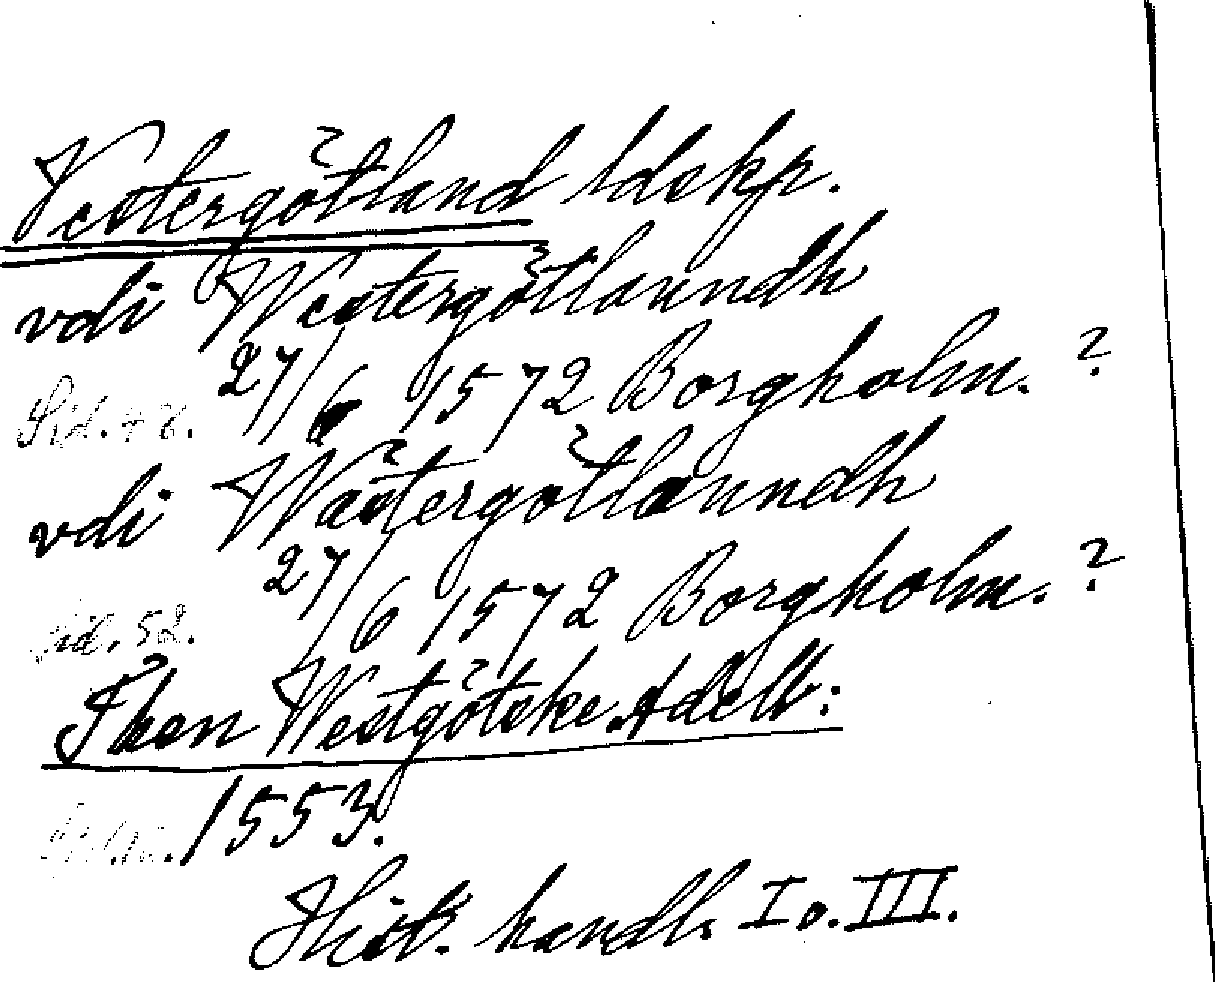 Vestergötland ldskp.
vdi Westergötlanndh
Sid. 48. 27/6 1572 Borgholm. ?
vdi Wästergötlanndh
sid. 52. 27/6 1572 Borgholm. ?
Then Westgötske Adell:
1553.
Hist. handl. I o. III.